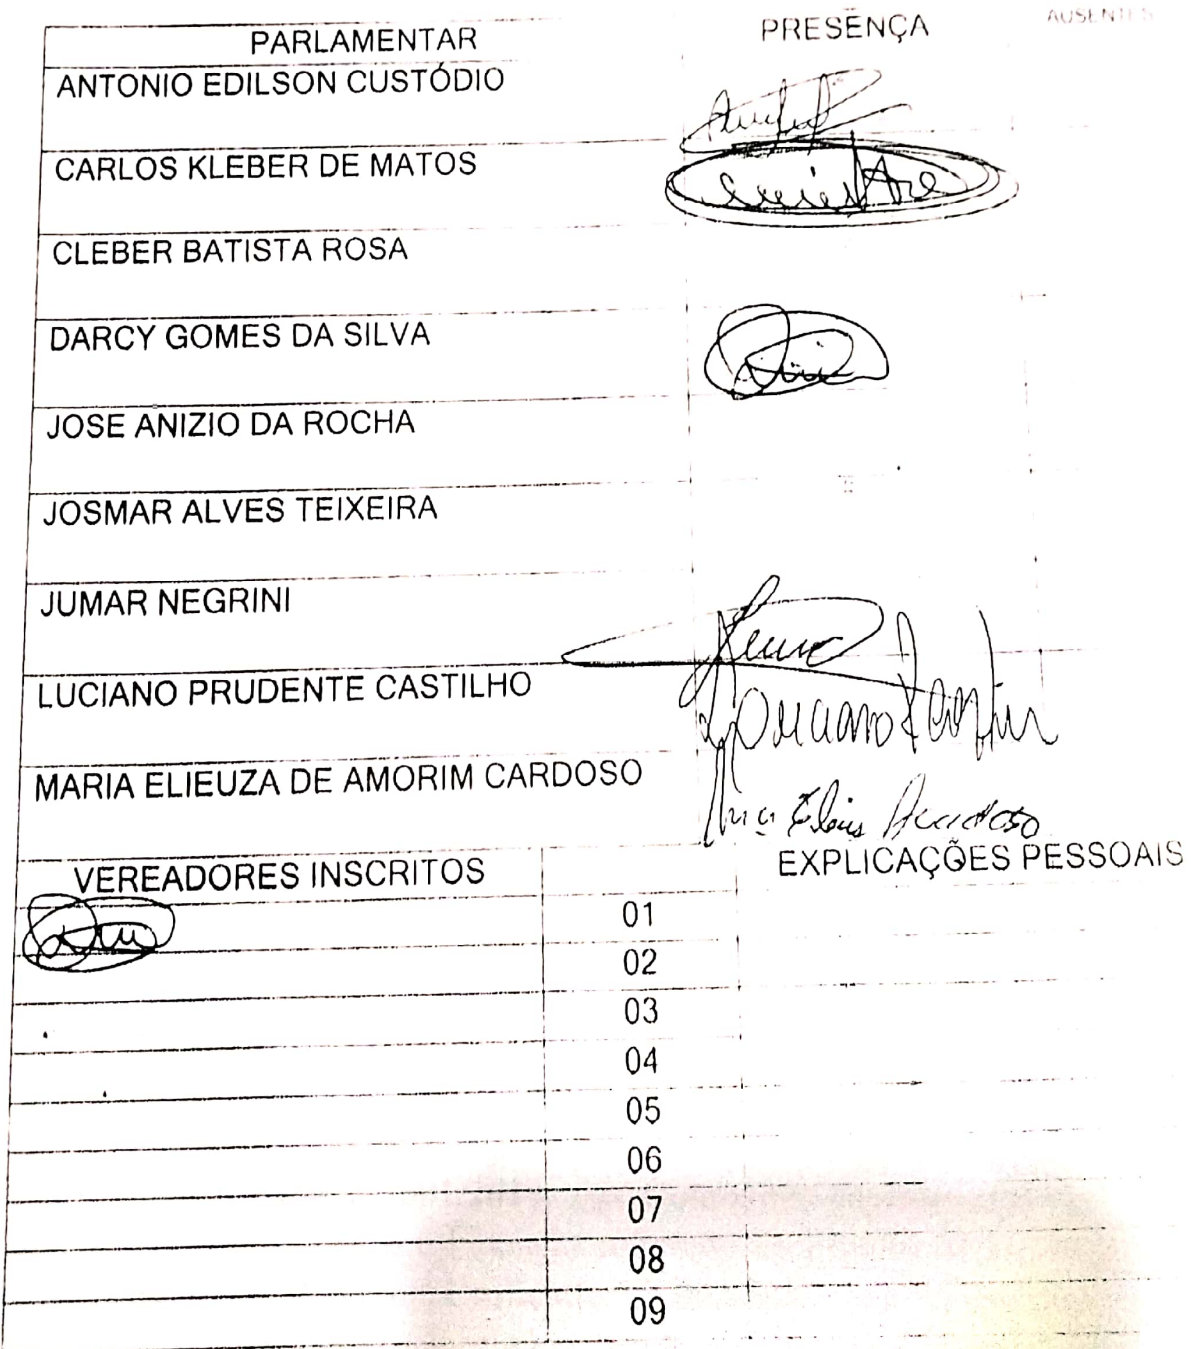 PARLAMENTAR PRESENÇA AUSENTES
ANTONIO EDILSON CUSTÓDIO
CARLOS KLEBER DE MATOS
CLEBER BATISTA ROSA
DARCY GOMES DA SILVA
JOSE ANIZIO DA ROCHA
JOSMAR ALVES TEIXEIRA
JUMAR NEGRINI
LUCIANO PRUDENTE CASTILHO
MARIA ELIEUZA DE AMORIM CARDOSO
VEREADORES INSCRITOS EXPLICAÇÕES PESSOAIS
01
02
03
04
05
06
07
08
09